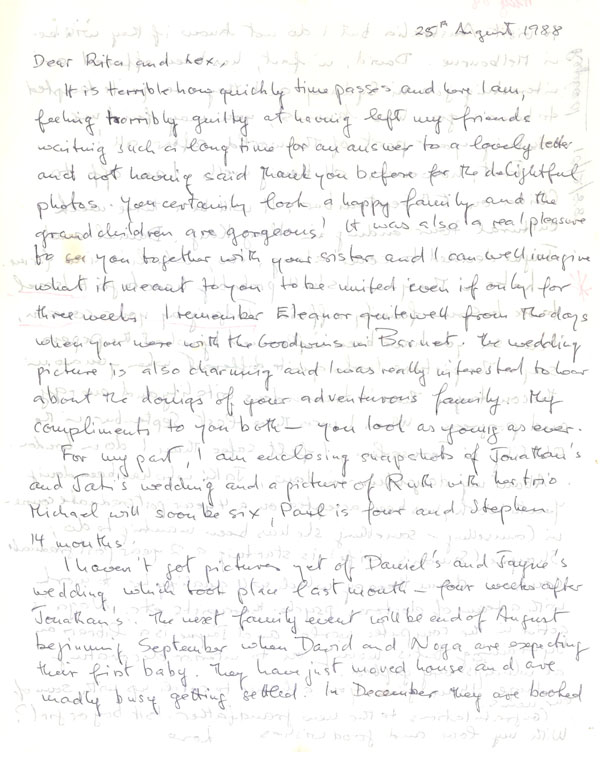 25th August 1988
Dear Rita and Lex,
It is terrible how quickly time passes and here I am,
feeling horribly guilty at having left my friends
waiting such a long time for an answer to a lovely letter
and not having said thank you before for the delightful
photos. You certainly look a happy family and the
grandchildren are gorgeous! It was also a real pleasure
to see you together with your sister and I can well imagine
what it meant to you to be united even if only for
three weeks. I remember Eleanor quite well from the days
when you were with the Goodwins in Barnet. The wedding
picture is also charming and I was really interested to hear
about the doings of your adventurous family. My
compliments to you both – you look as young as ever.
For my part, I am enclosing snapshots of Jonathan's
and Jati's wedding and a picture of Ruth with her trio.
Michael will soon be six, Paul is four and Stephen
14 months.
I haven't got pictures yet of Daniel's and Jayne's
wedding which took place last month – four weeks after
Jonathan's. The next family event will be end of August
beginning September when David and Noga are expecting
their first baby. They have just moved house and are
madly busy getting settled. In December they are booked